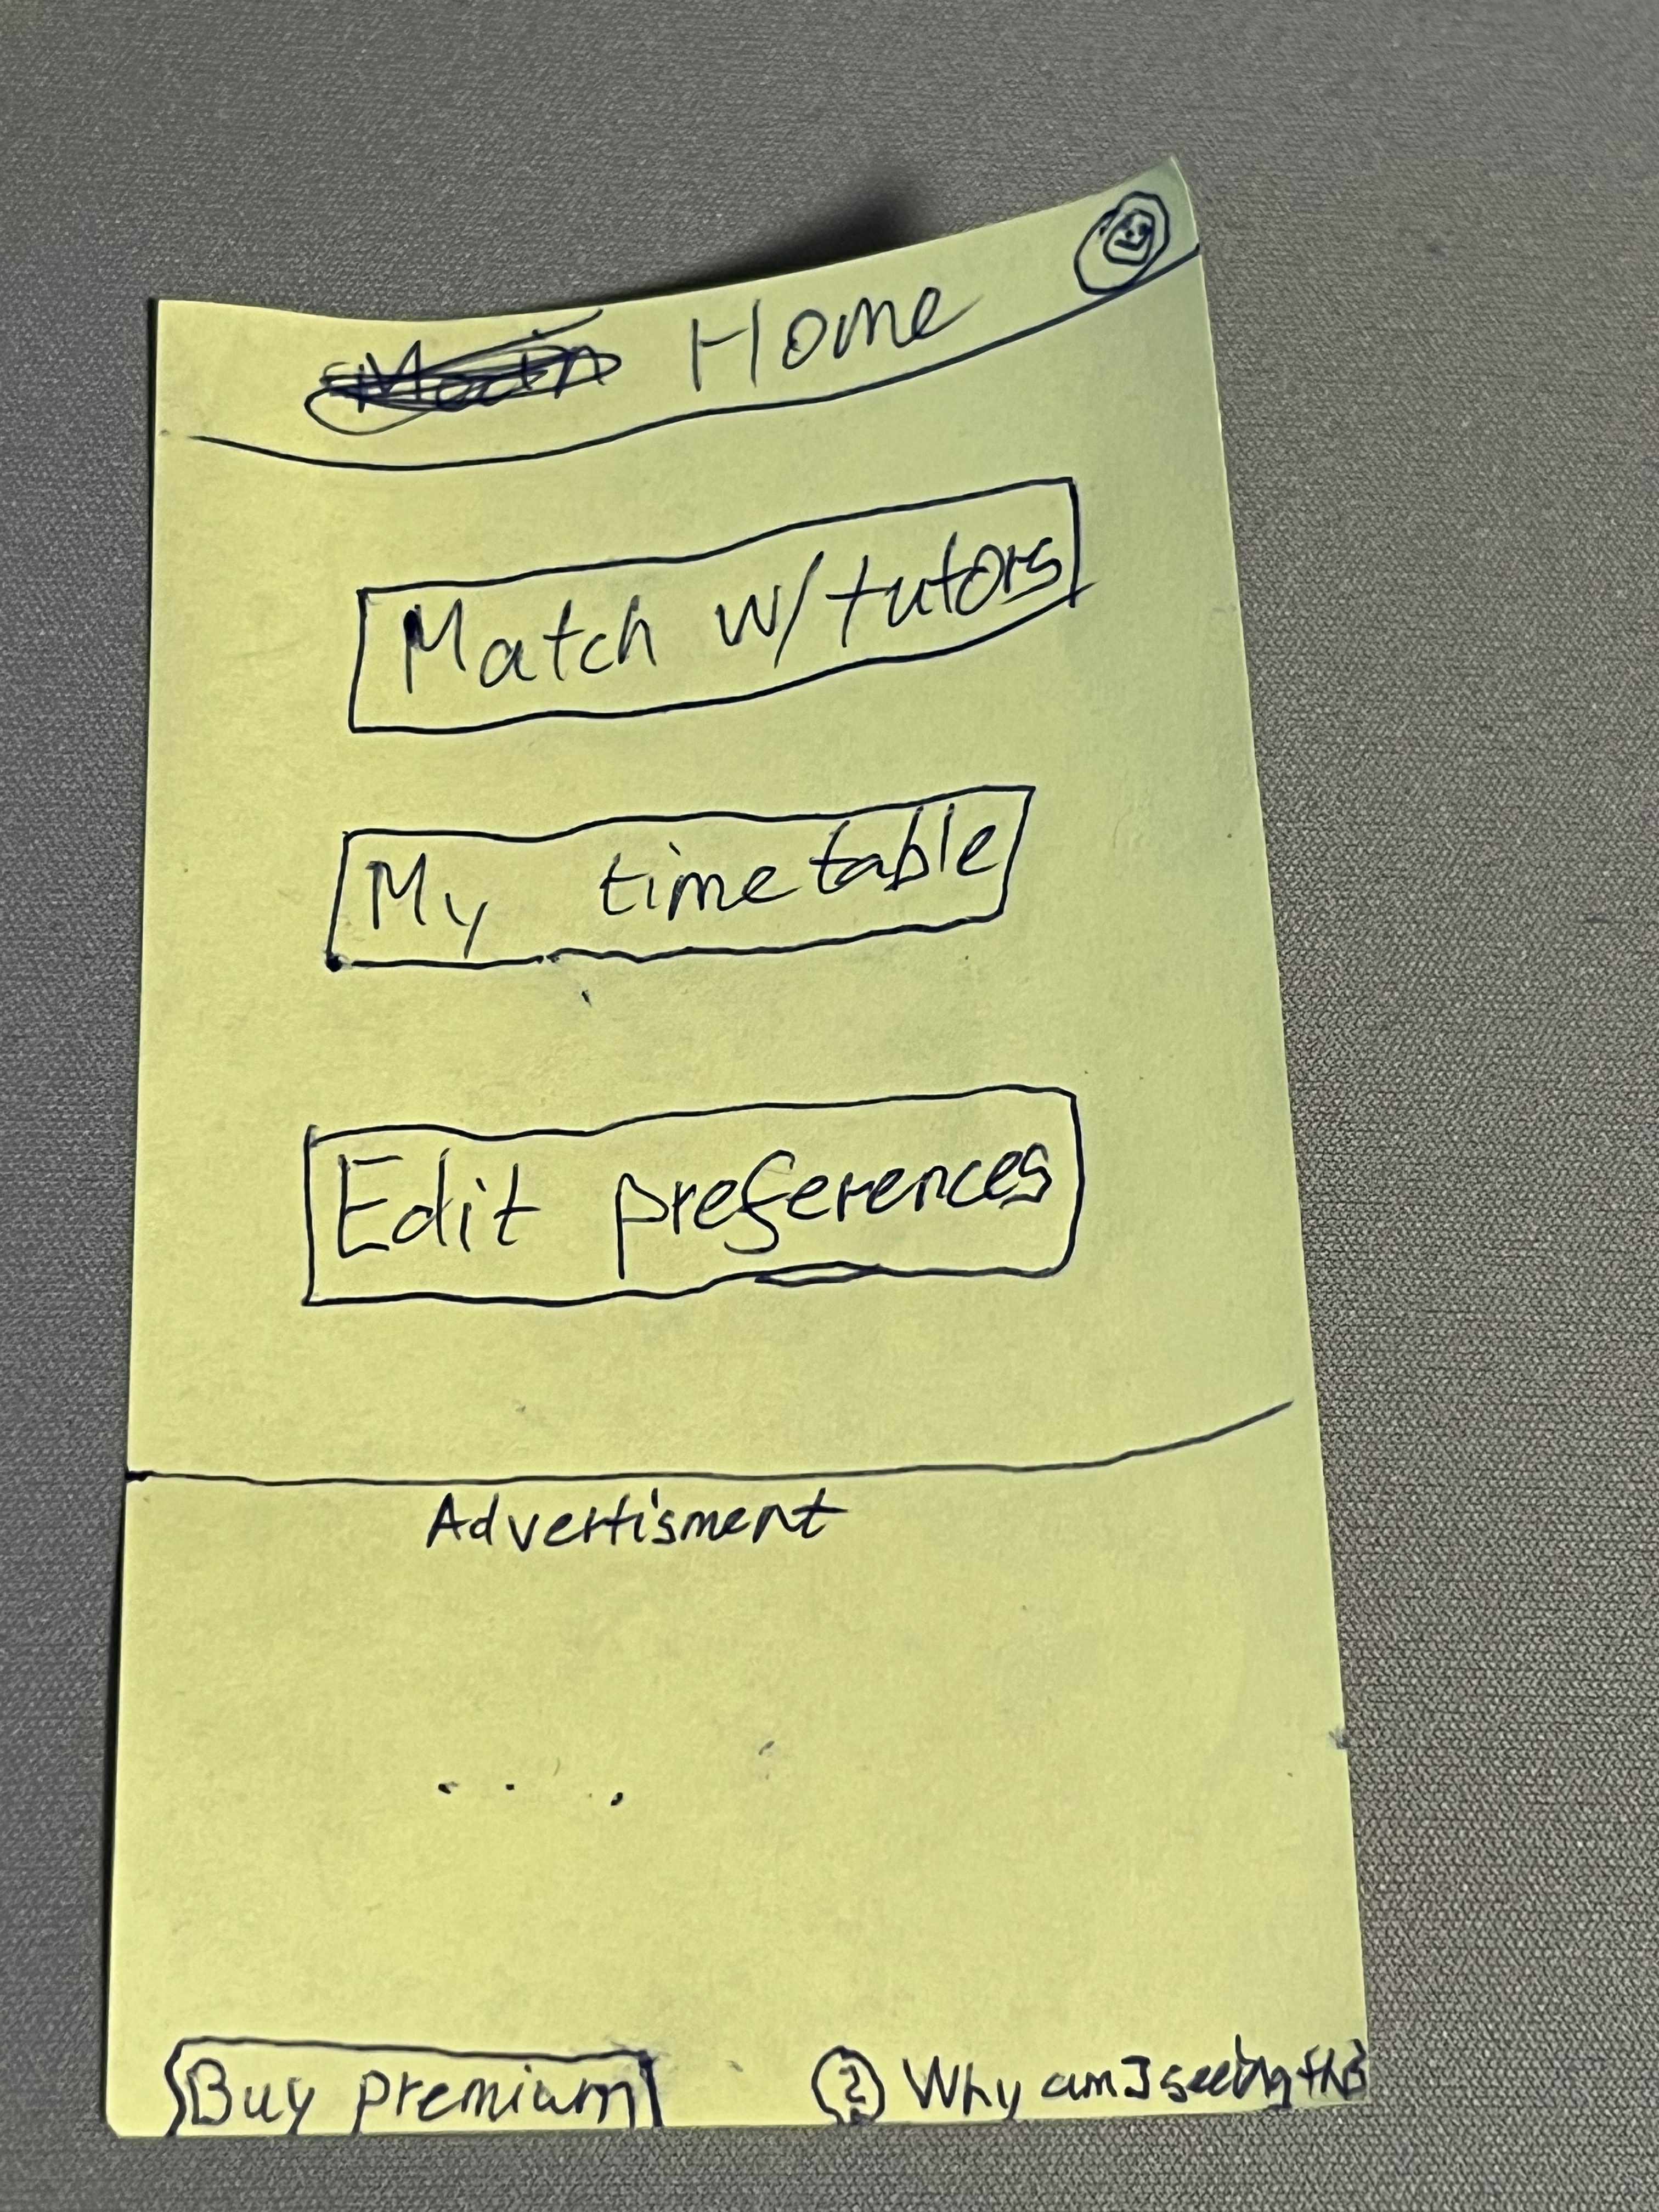 Home
Match w/tutors
My timetable
Edit preferences
Advertisment
....
Buy premium
? Why am I seeing this